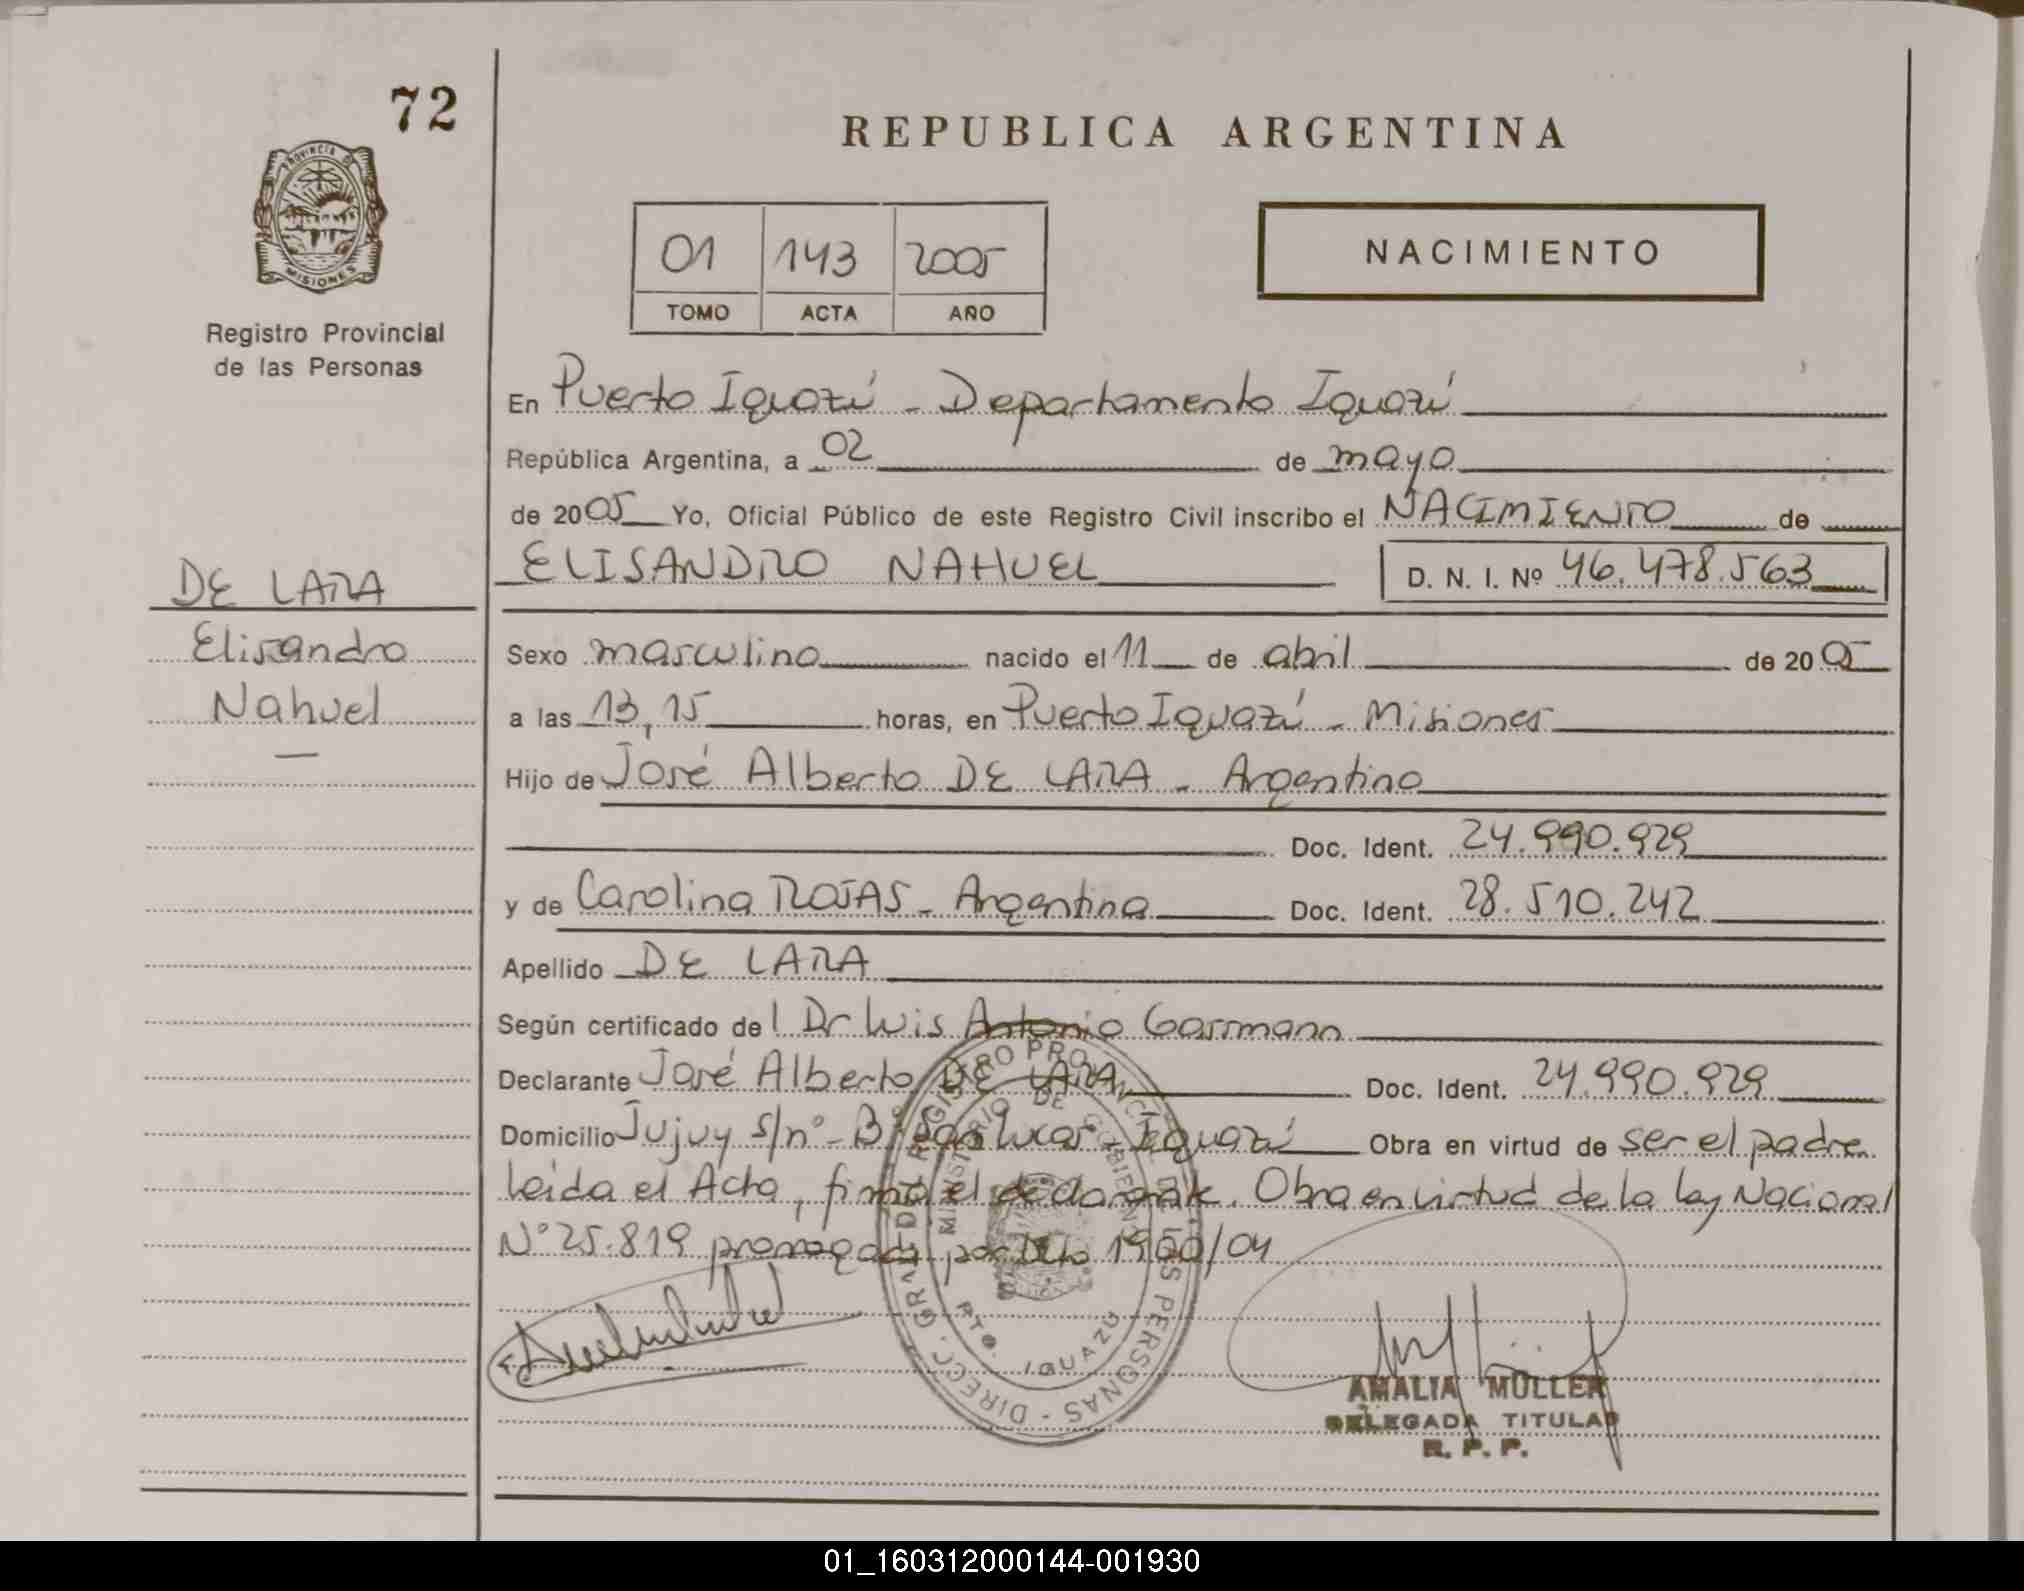 72
PROVINCIA DE
MISIONES
Registro Provincial
de las Personas
REPUBLICA ARGENTINA
01 143 2005
TOMO ACTA AÑO
NACIMIENTO
En Puerto Iguazú - Departamento Iguazú
República Argentina, a 02 de mayo
de 2005 Yo, Oficial Público de este Registro Civil inscribo el NACIMIENTO de
ELISANDRO NAHUEL D. N. I. Nº 46.478.563
DE LARA
Elisandro
Nahuel
Sexo masculino nacido el 11 de abril de 2005
a las 13,15 horas, en Puerto Iguazú - Misiones
Hijo de José Alberto DE LARA - Argentino
Doc. Ident. 24.990.929
y de Carolina ROJAS - Argentina Doc. Ident. 28.510.242
Apellido DE LARA
Según certificado del Dr Luis Antonio Gassmann
Declarante José Alberto DE LARA Doc. Ident. 24.990.929
Domicilio Jujuy s/nº - Bº San Lucas - Iguazú Obra en virtud de ser el padre
Leida el Acta, firma el declarante. Obra en virtud de la ley Nacional
Nº 25.819 prorrogada por Dto 1960/04
DIRECC. GRAL. DE REGISTRO PROVINCIAL DE LAS PERSONAS
MINISTERIO DE GOBIERNO
PTO. IGUAZU
AMALIA MULLER
DELEGADA TITULAR
R. P. P.
01_160312000144-001930